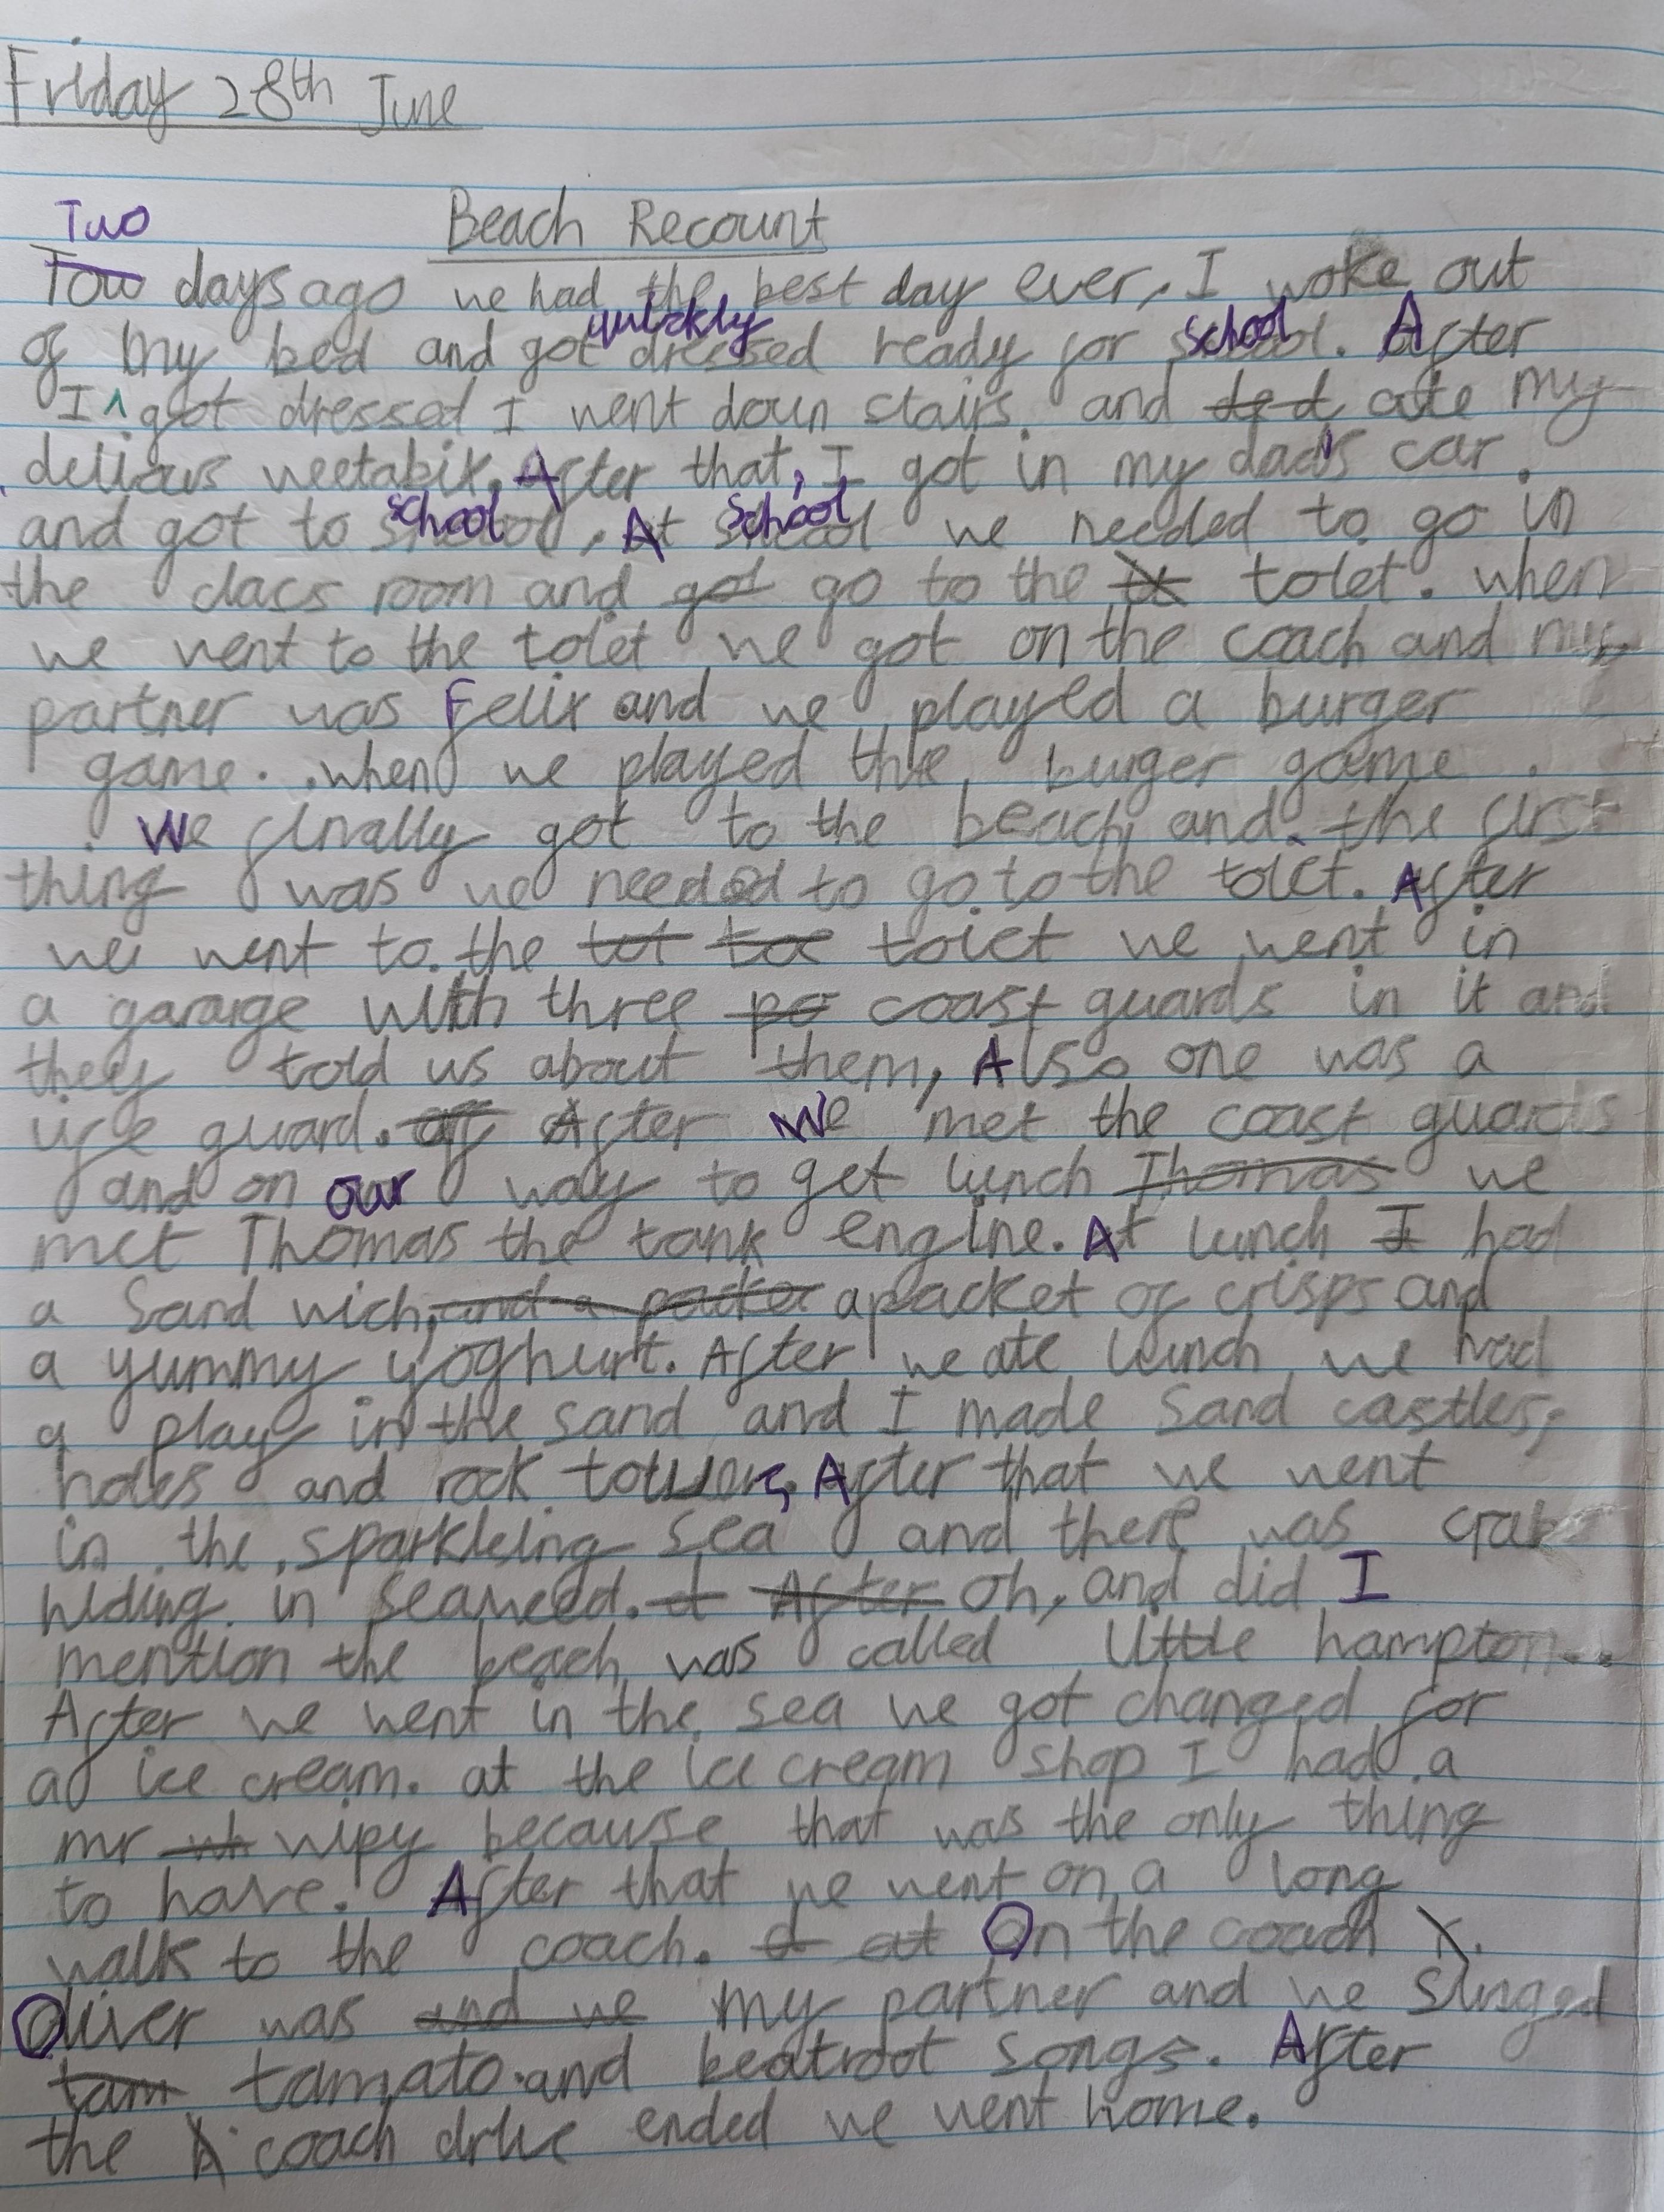 Friday 28th June
Two
Beach Recount
Tow days ago we had the best day ever, I woke out
quickly school
of my bed and got dressed ready for school. After
I ^ got dressed I went down stairs. and ded ate my
delious weetabix. After that, I got in my dad's car.
school school
and got to, At we needed to go in
the clacs room and got go to the tolet. when
we went to the tolet we got on the coach and my
partner was Felix and we played a burger
game. when we played the burger game.
We finally got to the beach and the first
thing was we needed to go to the tolet. After
we went to the tot toe toiet we went in
a garage with three po coast guards in it and
they told us about them, Also one was a
life guard. af After We met the coast guards
and on our way to get lunch Thomas we
met Thomas the tank engine. At lunch I had
a Sand wich, and a packet a packet of crisps and
a yummy yoghurt. After we ate lunch we had
a play in the sand and I made Sand castles,
holes and rock towers, After that we went
in the sparkleing sea and there was crab
hiding in seaweed. After Oh, and did I
mention the beach was called little hampton...
After we went in the sea we got changed for
a ice cream. at the ice cream shop I had a
mr wh wipy because that was the only thing
to have. After that we went on a long
walk to the coach. at On the coach
Oliver was and we my partner and we singed
tam tamato and beatroot songs. After
the coach drive ended we went home.